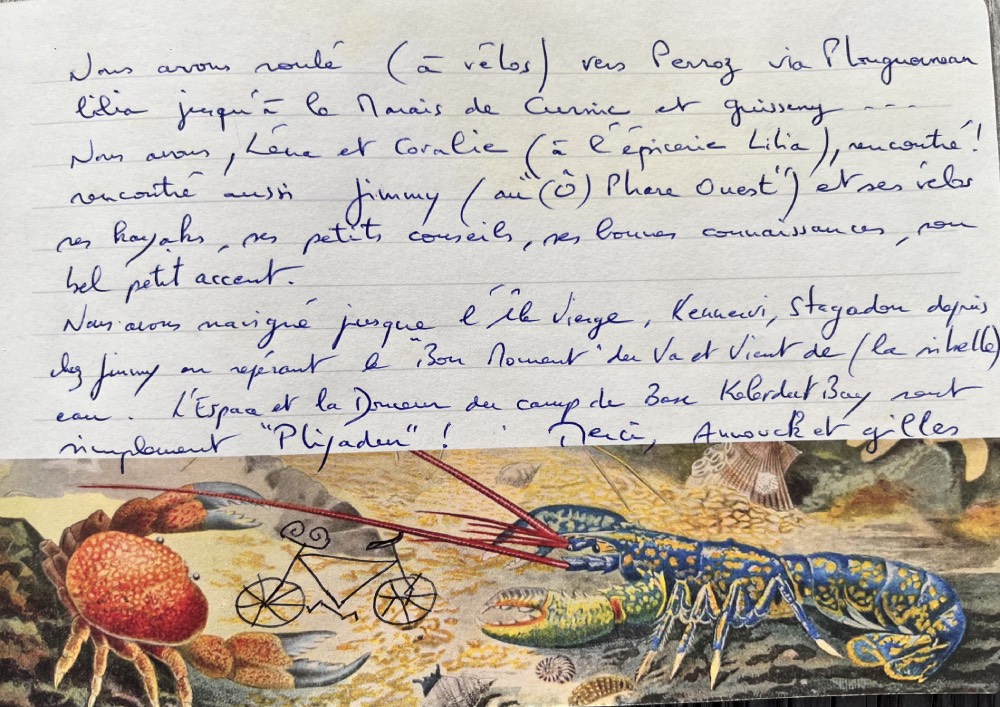 Nous avons roulé (à vélos) vers Perroz via Plouguerneau
Lilia jusqu'à le Marais de Curnic et guisseny ---
Nous avons, Léna et Coralie (à l'épicerie Lilia), rencontré!
rencontré aussi Jimmy (au "(Ô) Phare Ouest") et ses vélos
ses kayaks, ses petits conseils, ses bonnes connaissances, son
bel petit accent.
Nous avons navigué jusque l'île Vierge, Stagadon depuis
chez Jimmy en repérant le "Bon Moment" du Va et Vient de (la nibelle)
eau. L'Espace et la Douceur du camp de Base Kelerdut Bay sont
simplement "Plijaden"! Merci, Annouck et gilles